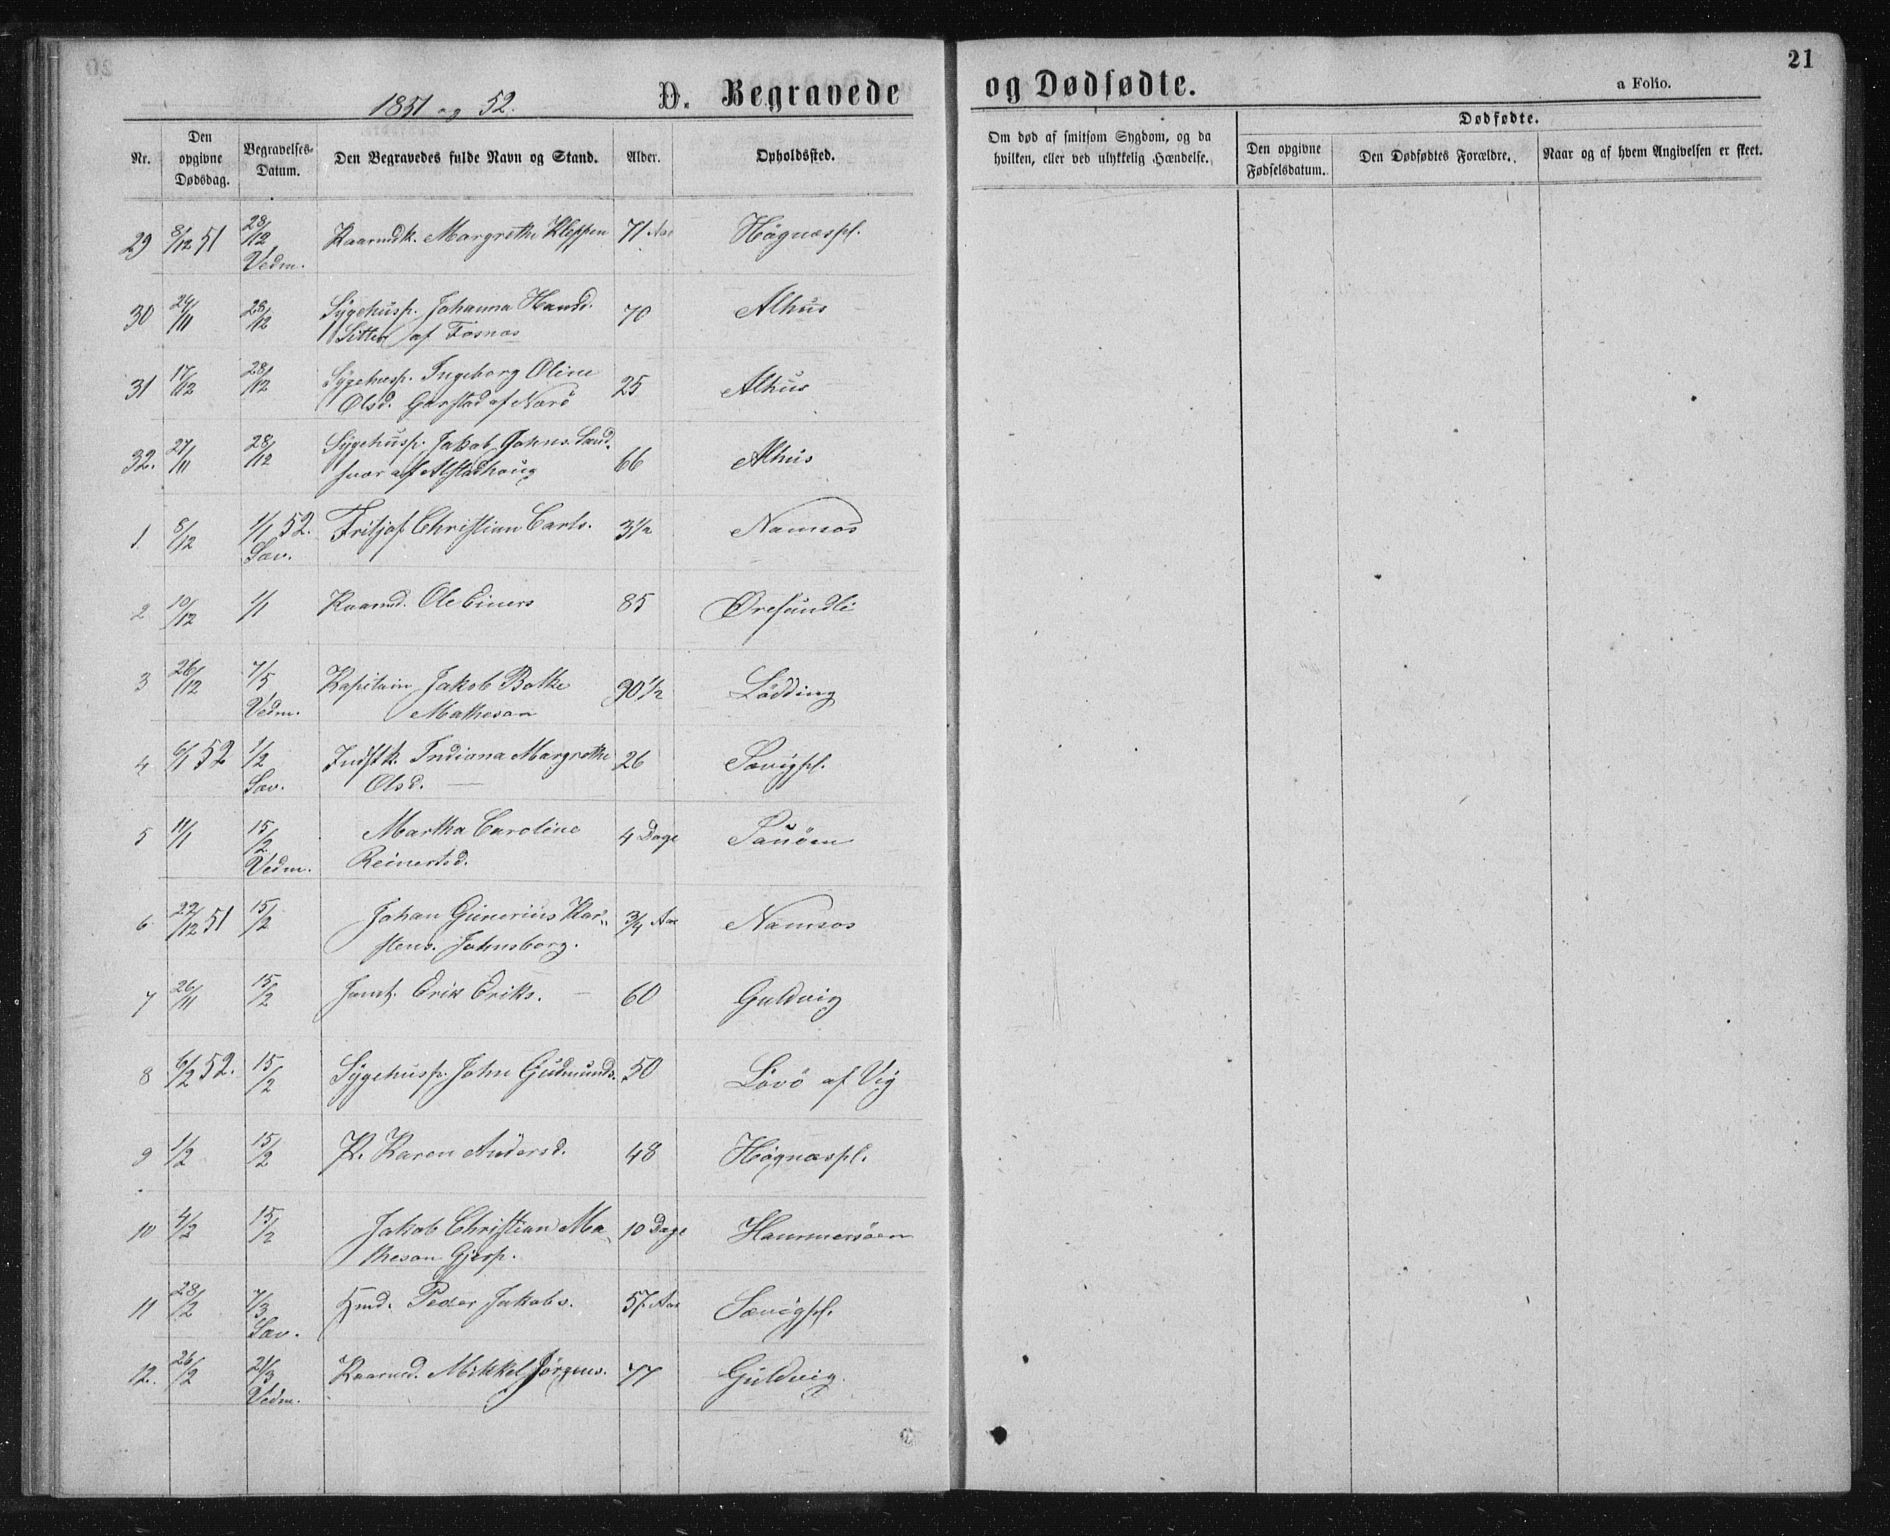 21
1851 og 52. D. Begravede og Dødfødte. a Folio.
Nr. Den opgivne Dødsdag. Begravelses-Datum. Den Begravedes fulde Navn og Stand. Alder. Opholdssted. Om død af smitsom Sygdom, og da hvilken, eller ved ulykkelig Hændelse. Dødfødte. Den opgivne Fødselsdatum. Den Dødfødtes Forældre. Naar og af hvem Angivelsen er skeet.
29 8/12 51 28/12 Vedm. Kaarmdk. Margrethe Kleppen 71 Aar Høgnæspl.
30 24/11 28/12 Sygehusp. Johanna Hansd. 70 Alhus
Sitter af Fosnæs
31 17/12 28/12 Sygehusp. Ingeborg Oline 25 Alhus
Olsd. Garstad af Nærö
32. 27/11 28/12 Sygehusp. Jakob Johns. Sand- 66 Alhus
af Alstadhoug
1 8/12 1/1 52. Sæv. Fritjof Christian Carls. 3 1/2 Namsos
2 10/12 1/1 Kaarmd. Ole Einers 85 Øresundli
3 26/12 7/5 Vedm. Kapitain Jakob Botke 90 1/2 Lödding
Matheson
4 6/1 52 1/2 Sæv. Indstk. Indiana Margrethe 26 Sævigpl.
Olsd.
5 11/1 15/2 Vedm. Martha Caroline 4 Dage
Reinertsd.
6 22/12 51 15/2 Johan Gunerius Kar- 3/4 Aar Namsos
stens. Johnsborg.
7 26/11 15/2 Erik Eriks. 60 Guldvig
8 6/2 52. 15/2 Sygehusp. John Gudmunds. 50 Lövö af Vig
9 1/2 15/2 P. Karen Andersd. 48 Høgnæspl.
10 4/2 15/2 Jakob Christian Ma- 10 Dage Hammersöen
theson Gjesp.
11 28/2 7/3 Sæv. Hmd. Peder Jakobs. 57 Aar Sævigpl.
12. 26/2 21/3 Vedm. Kaarmd. Mikkel Jörgens. 77 Guldvig.